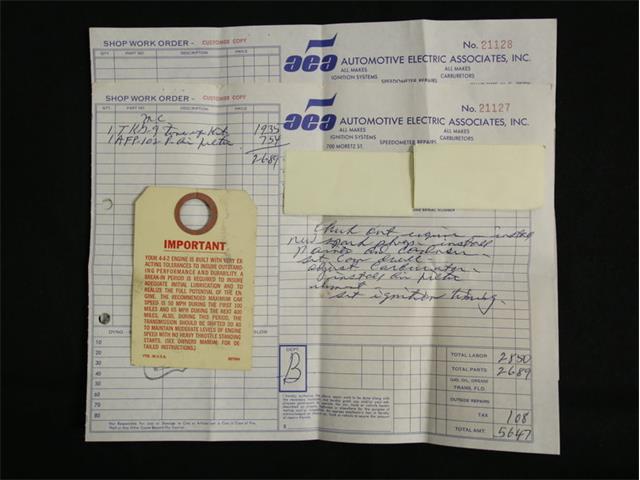 SHOP WORK ORDER - CUSTOMER COPY
QTY. PART NO. DESCRIPTION PRICE
aea
AUTOMOTIVE ELECTRIC ASSOCIATES, INC.
No. 21128
ALL MAKES ALL MAKES
IGNITION SYSTEMS CARBURETORS
SPEEDOMETER REPAIRS
SHOP WORK ORDER - CUSTOMER COPY
QTY. PART NO. DESCRIPTION PRICE
M.C.
1 Tune up Kit 1935
1 AFP 102 air filter 754
2689
aea
AUTOMOTIVE ELECTRIC ASSOCIATES, INC.
No. 21127
ALL MAKES ALL MAKES
IGNITION SYSTEMS CARBURETORS
SPEEDOMETER REPAIRS
700 MORETZ ST.
SERIAL NUMBER
Check out engine - install
new spark plugs - install
points and condenser -
set cam dwell -
adjust carburator -
install air filter
element -
set ignition timing -
IMPORTANT
YOUR 4-4-2 ENGINE IS BUILT WITH VERY EX-
ACTING TOLERANCES TO INSURE OUTSTAND-
ING PERFORMANCE AND DURABILITY. A
BREAK-IN PERIOD IS REQUIRED TO INSURE
ADEQUATE INITIAL LUBRICATION AND TO
REALIZE THE FULL POTENTIAL OF THE EN-
GINE. THE RECOMMENDED MAXIMUM CAR
SPEED IS 50 MPH DURING THE FIRST 100
MILES AND 65 MPH DURING THE NEXT 400
MILES. ALSO, DURING THIS PERIOD, THE
TRANSMISSION SHOULD BE SHIFTED SO AS
TO MAINTAIN MODERATE LEVELS OF ENGINE
SPEED WITH NO HEAVY THROTTLE STANDING
STARTS. (SEE OWNERS MANUAL FOR DE-
TAILED INSTRUCTIONS.)
PTD. IN U.S.A.
DYNO
10
20
30
40
50
60
70
80
DEPT.
B
TOTAL LABOR 2850
TOTAL PARTS 2689
GAS, OIL, GREASE
TRANS. FLD.
OUTSIDE REPAIRS
TAX 108
TOTAL AMT. 5647
Not Responsible For Loss or Damage to Cars or Articles Left in Cars in